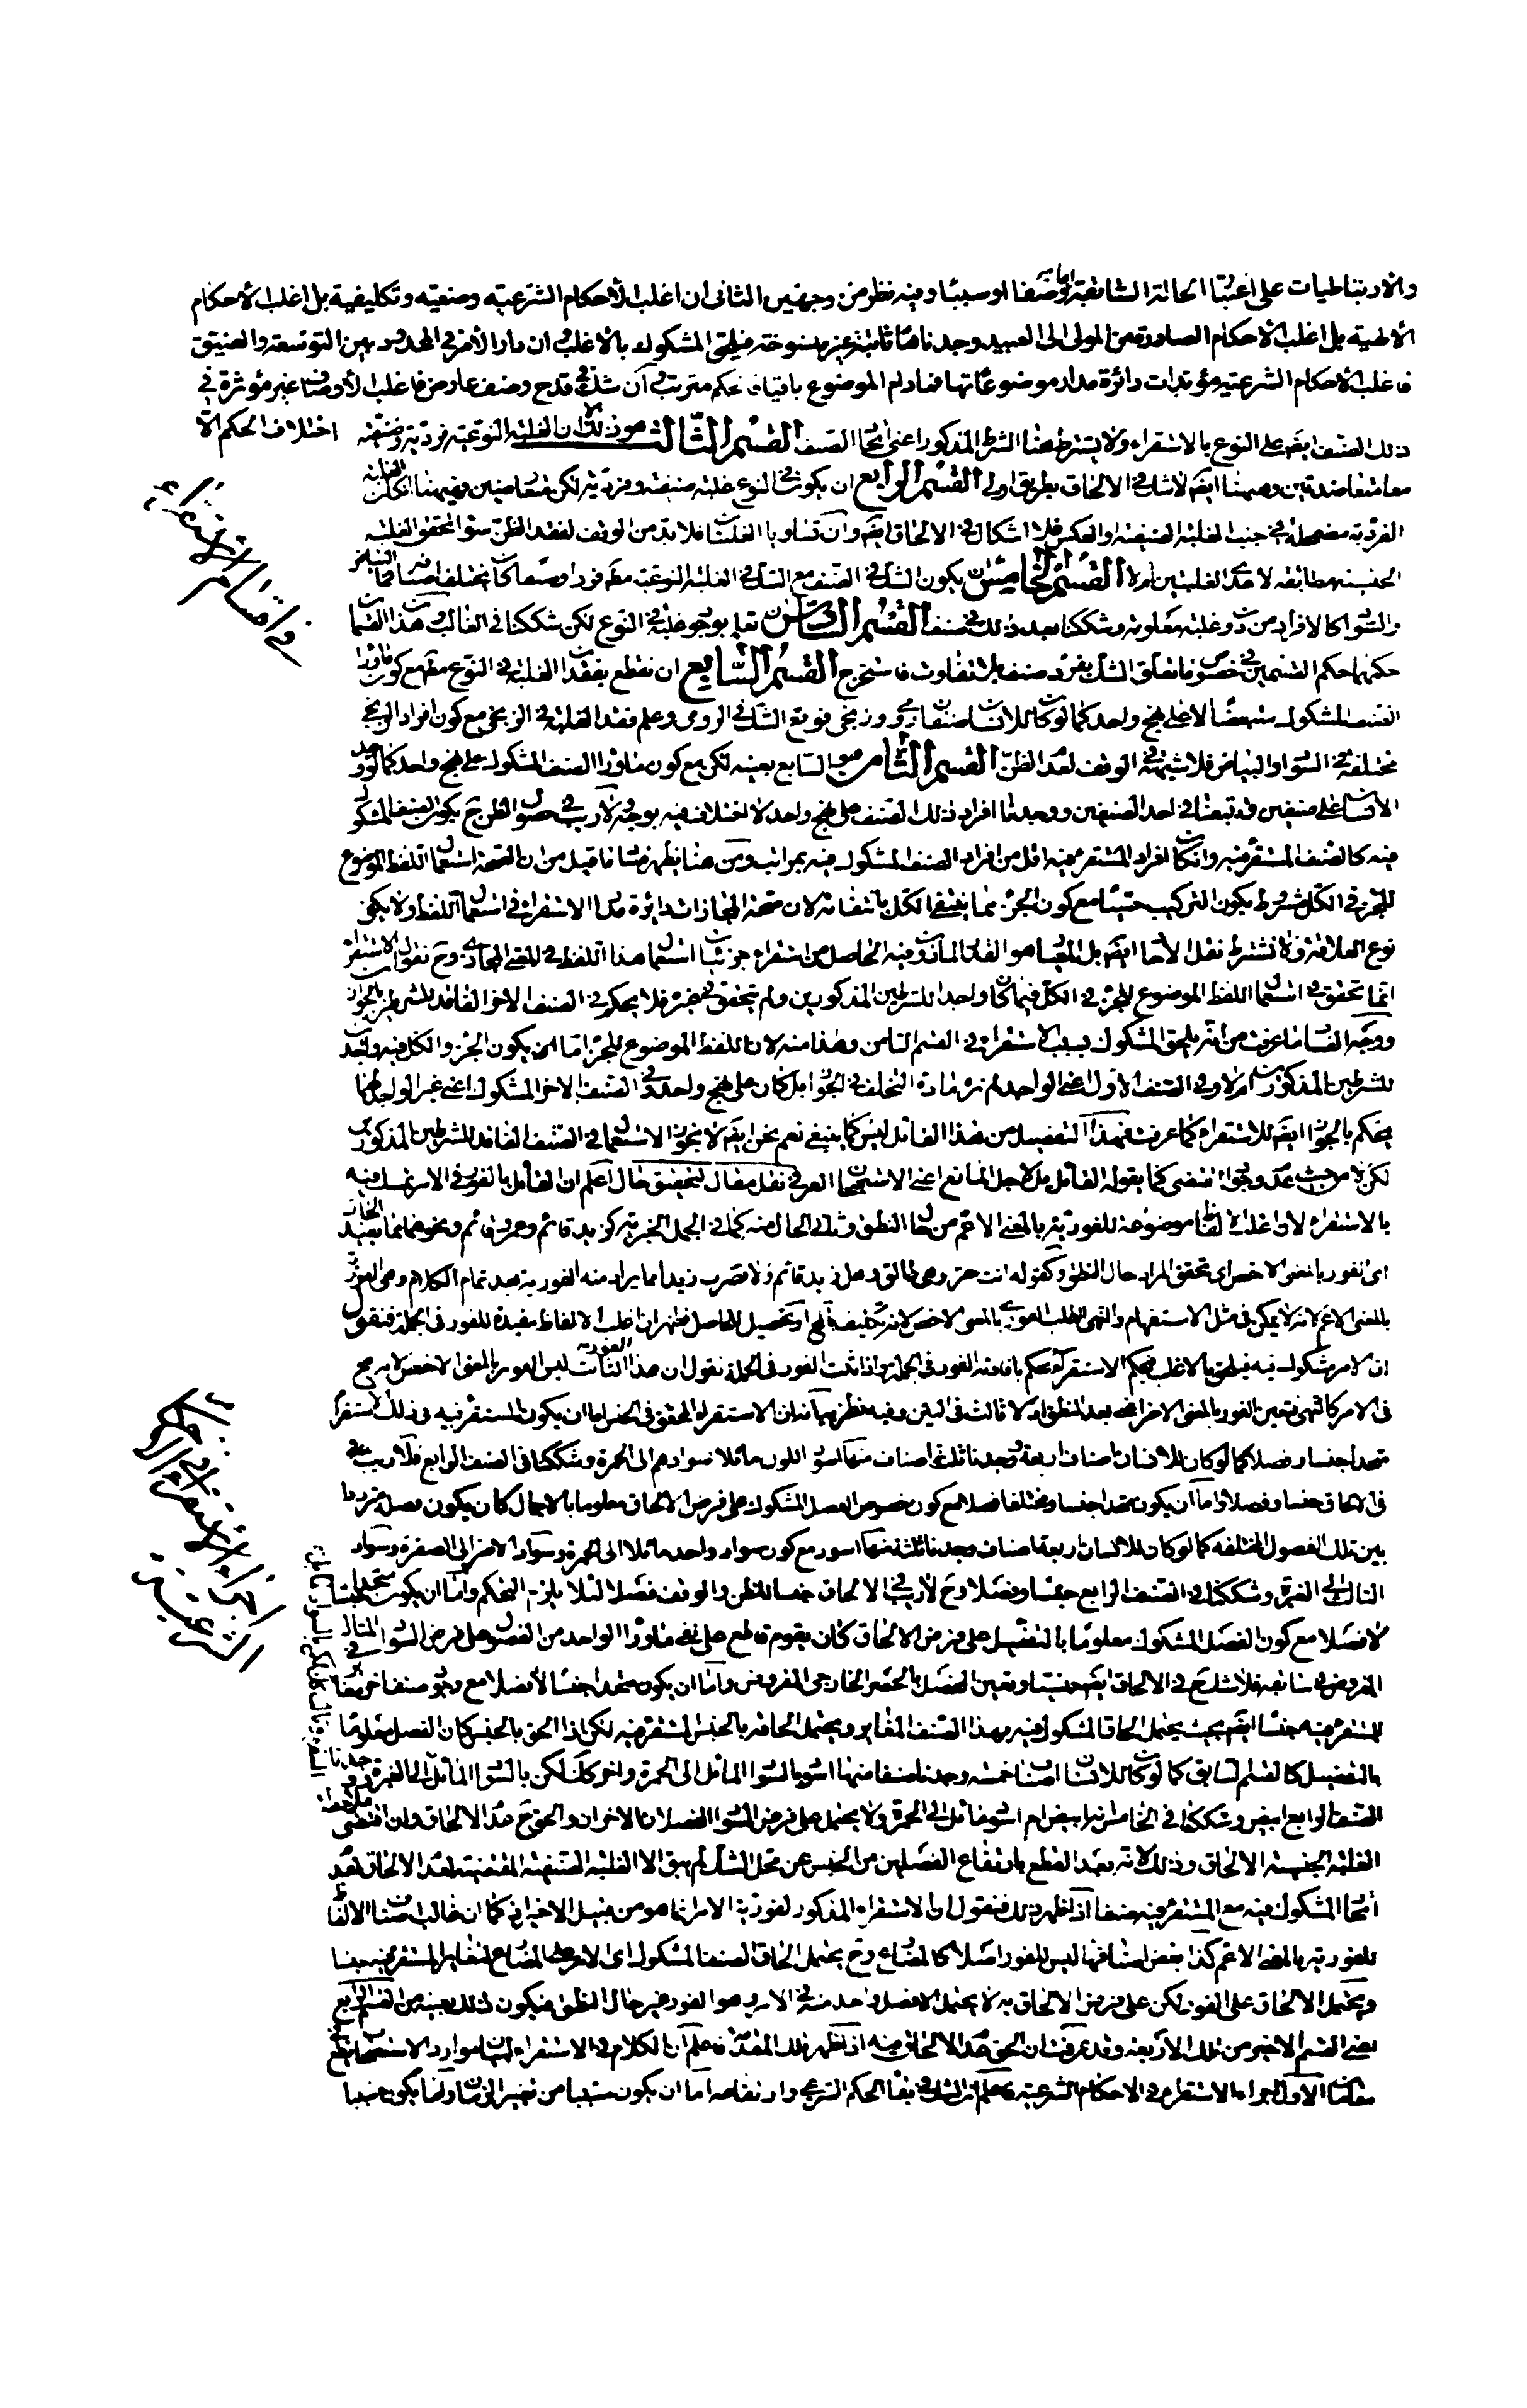 والارتباطيات على اعتبار الحالة السابقة اما وصفا او سببا وفيه نظر من وجهين الثانى ان اغلب الأحكام الشرعية وضعيه وتكليفية بل اغلب الأحكام
الالهية بل اغلب الأحكام الصادرة من المولى الى العبيد وجدناها ثابتة غير منسوخة فيلحق المشكوك بالاغلب وان دار الأمر فى المحدود بين التوسعة والضيق
فاغلب الأحكام الشرعية مؤبدات دائرة مدار موضوعاتها فمادام الموضوع باقيا فالحكم مترتب وان شك فى قدح وصف عارض فاغلب الأوصاف غير مؤثرة فى
اختلاف الحكم الا
ذلك الصنف ايضا على النوع بالاستقراء ولا يشترط هنا الشرط المذكور اعنى اتحاد الصنف القسم الثالث هو ذلك الا ان الغلبة النوعية فردية وصنفية
معا متعاضدتين وهيهنا ايضا لا شك فى الالحاق بطريق اولى القسم الرابع ان يكون فى النوع غلبة صنفية وفردية لكن متعارضين وهيهنا ان كان الغلبة
الفردية مضمحلة فى جنب الغلبة الصنفية او العكس فلا اشكال فى الالحاق ايضا وان تساويا الغلبتان فلا بد من الوقف لفقد الظن سواء تحقق الغلبة
الجنسية مطابقة لاحدى الغلبتين ام لا القسم الخامس ان يكون الشك فى الصنف مع الشك فى الغلبة النوعية
والسواد كالافراد من ذو غلبة معلومة وشككنا بعد ذلك فى صنف القسم السادس ان نعلم بوجود غلبة فى النوع لكن شككنا فى الغالب وهذان القسمان
حكمهما حكم القسمين فى خصوص ما تعلق الشك بفرد صنف بلا تفاوت فاستخرج القسم السابع ان نقطع بفقد الغلبة فى النوع مع كون ما وراء
الصنف المشكوك منهضا لا على نهج واحد كما لو كان للانسان صنفان رومى وزنجى فوقع الشك فى الرومى وعلم فقد الغلبة فى الزنجى مع كون افراد الزنجى
مختلفة فى السواد والبياض فلا شبهة فى الوقف لعدم الظن القسم الثامن هو السابع بعينه لكن مع كون ما وراء الصنف المشكوك على نهج واحد كما لو وجد
الانسان على صنفين فتتبعنا فى احد الصنفين ووجدنا افراد ذلك الصنف على نهج واحد لا اختلاف فيه بوجه لا ريب فى حصول الظن ح بكون الصنف المشكوك
فيه كالصنف المستقرء فيه وان كان افراد المستقرء فيه اقل من افراد الصنف المشكوك فيه بمراتب ومن هنا يظهر فساد ما قيل من ان الصحة استعمال اللفظ الموضوع
للجزء فى الكل مشروط بكون التركيب حسيا مع كون الجزء مما ينتفى الكل بانتفائه لان صحة المجازات دائرة مدار الاستقراء فى استعمال اللفظ ولا يكفى
نوع العلاقة ولا نشترط نقل الآحاد ايضا بل المعيار هو القدر المأذون فيه الحاصل من استقراء جزئيات استعمال هذا اللفظ فى المعنى المجازى وح نقول ان الاستقراء
انما تحقق فى استعمال اللفظ الموضوع للجزء فى الكل فيما كان واجدا للشرطين المذكورين ولم يتحقق فى غيره فلا يحكم فى الصنف الاخر الفاقد للشرطين بالجواز
ووجه الفساد ما عرفت من انه يلحق المشكوك بسبب الاستقراء فى القسم الثامن وهذا منه لان اللفظ الموضوع للجزء اما ان يكون الجزء والكل فيه واجد
للشرطين المذكورين ام لا وفى الصنف الاول اعنى الواجد لم نر مادة التخلف فى الجواز بل كان على نهج واحد ففى الصنف الاخر المشكوك اعنى غير الواجد لهما
يحكم بالجواز ايضا للاستقراء كما عرفت فهذا التفصيل من هذا القائل ليس كما ينبغى نعم نحن ايضا لا نجوز الاستعمال فى الصنف الفاقد للشرطين المذكورين
لكن لا من حيث عدم وجود المقتضى كما يقوله القائل بل لاجل المانع اعنى الاستهجان العرفى نقل مقال لتحقيق حال اعلم ان القائل بالفور فى الامر تمسك فيه
بالاستقراء لان اغلب الالفاظ موضوعة للفورية بالمعنى الاعم من حال النطق وثانى الحال منه كما فى الجمل الخبرية كزيد قائم وعمرو قائم ونحوهما مما يفيد الحال
اى الفور بالمعنى الاخص اى تحقق المراد حال النطق وكقوله انت حر وهى طالق وهل زيد قائم ولا تضرب زيدا مما يراد منه الفورية بعد تمام الكلام وهى الفور
بالمعنى الاعم لانه لا يمكن فى مثل الاستفهام والنهى الطلب الفورى بالمعنى الاخص لانه تكليف بالمح او تحصيل للحاصل فظهر ان اغلب الالفاظ مفيدة للفور فى الجملة فنقول
ان الامر مشكوك فيه فيلحق بالاغلب فبحكم الاستقراء نحكم بافادته الفور فى الجملة واذا ثبت الفور فى الجملة نقول ان هذا الفورية الثابت ليس الفور بالمعنى الاخص لا يرجح
فى الامر كالنهى فتعين الفور بالمعنى الاخر اعنى بعد النطق اذ لا ثالث فى البين وفيه نظر بيانه ان الاستقراء المحقق فى الجنس اما ان يكون المستقرء فيه فى ذلك الاستقراء
متحدا جنسا وفصلا كما لو كان للانسان اصناف اربعة وجدنا ثلثة اصناف منها اسود اللون مائلا سوادهم الى الحمرة وشككنا فى الصنف الرابع فلا ريب ح
فى الالحاق جنسا وفصلا واما ان يكون متحدا جنسا ومختلفا فصلا مع كون خصوص الفصل المشكوك على فرض الالحاق معلوما بالاجمال كان يكون فصله مرددا
بين تلك الفصول المختلفه كما لو كان للانسان اربعة اصناف وجدنا ثلثة منها اسود مع كون سواد واحد مائلا الى الحمرة وسواد الاخر الى الصفرة وسواد
الثالث الى الغبرة وشككنا فى الصنف الرابع جنسا وفصلا وح لا ريب فى الالحاق جنسا للظن والوقف فصلا لئلا يلزم التحكم واما ان يكون متحدا جنسا
لا فصلا مع كون الفصل المشكوك معلوما بالتفصيل على فرض الالحاق كان يقوم قاطع على نفى ما وراء الواحد من الفصول على فرض السواد فى المثال
المفروض فى سابقه فلا شك ح فى الالحاق ايضا جنسيتا وتعين الفصل بالحصر الخارجى المفروض واما ان يكون متحدا جنسا لا فصلا مع وجود صنف اخر مغاير
للمستقرء فيه جنسا ايضا بحيث يحتمل الحاق المشكوك فيه بهذا الصنف المغاير ويحتمل الحاقه بالجنس المستقرء فيه لكن اذا الحق بالجنس كان الفصل معلوما
بالتفصيل كالقسم السابق كما لو كان للانسان اصناف خمسة وجدنا صنفا منها اسود بالسواد المائل الى الحمرة واخر كك لكن بالسواد المائل الى الغبرة ووجدنا
الصنف الرابع ابيض وشككنا فى الخامس انه ابيض ام اسود مائل الى الحمرة ولا يحتمل على فرض السواد الفصلان الاخران والحق ح عدم الالحاق وان اقتضى ملاحظة
الغلبة الجنسية الالحاق وذلك لانه بعد القطع بارتفاع الفصلين من الجنس عن محل الشك لم يبق الا الغلبة الصنفية المقتضية لعدم الالحاق لعدم
اتحاد المشكوك فيه مع المستقرء فيه صنفا اذا ظهر ذلك فنقول ان الاستقراء المذكور لفورية الامر انما هو من قبيل الاخير اذ كما ان غالب اصناف الالفاظ
للفورية بالمعنى الاعم كذا بعض اصنافها ليس للفور اصلا كالمضارع وح يحتمل الحاق الصنف المشكوك اى الامر على المضارع المغاير المستقرء فيه جنسا
ويحتمل الالحاق على الفور لكن على فرض الالحاق به لا يحتمل الا فصل واحد منه فى الامر وهو الفور فى غير حال النطق فيكون ذلك بعينه من القسم الرابع
يعنى القسم الاخير من تلك الاربعة وقد عرفت ان الحق عدم الالحاق فيه اذا ظهر تلك المقدمة فاعلم ان الكلام فى الاستقراء لبيان موارد الاستصحاب يقع فى
مقامات الاول فى اجراء الاستقراء فى الاحكام الشرعية فاعلم ان الشك فى بقاء الحكم الشرعى وارتفاعه اما ان يكون مسببا من تغير الزمان واما يكون مسببا
فى اقسام الاستقراء
اجراء الاستقراء فى الاحكام الشرعية